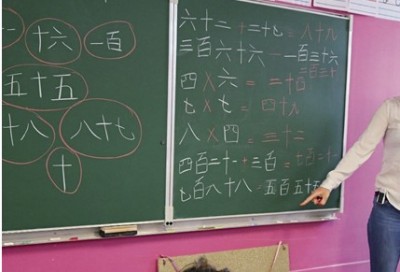 十六 一百
五十五
十八 八十七
十
六十二 + 二十七 = 八十九
三百六十六 - 一百三十六
四 X 六 = 二十四
七 X 七 = 四十九
八 X 四 = 三十二
四百二十一 + 三百 = 七百二十一
七百八十八 = 五百五十